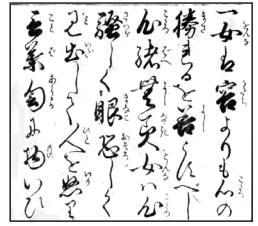 一女は容よりも心の
勝れるを善とすべし
心緒無美女ハ心
騒しく眼恐しく
見出して人を怒り
言葉訇に物いひ